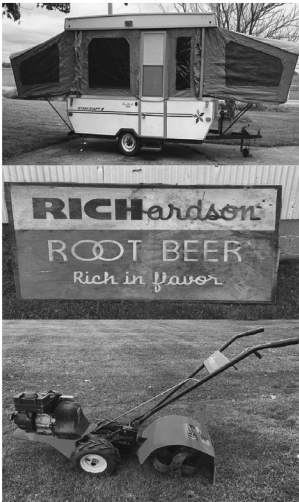 STARCRAFT
RICHardson
ROOT BEER
Rich in flavor